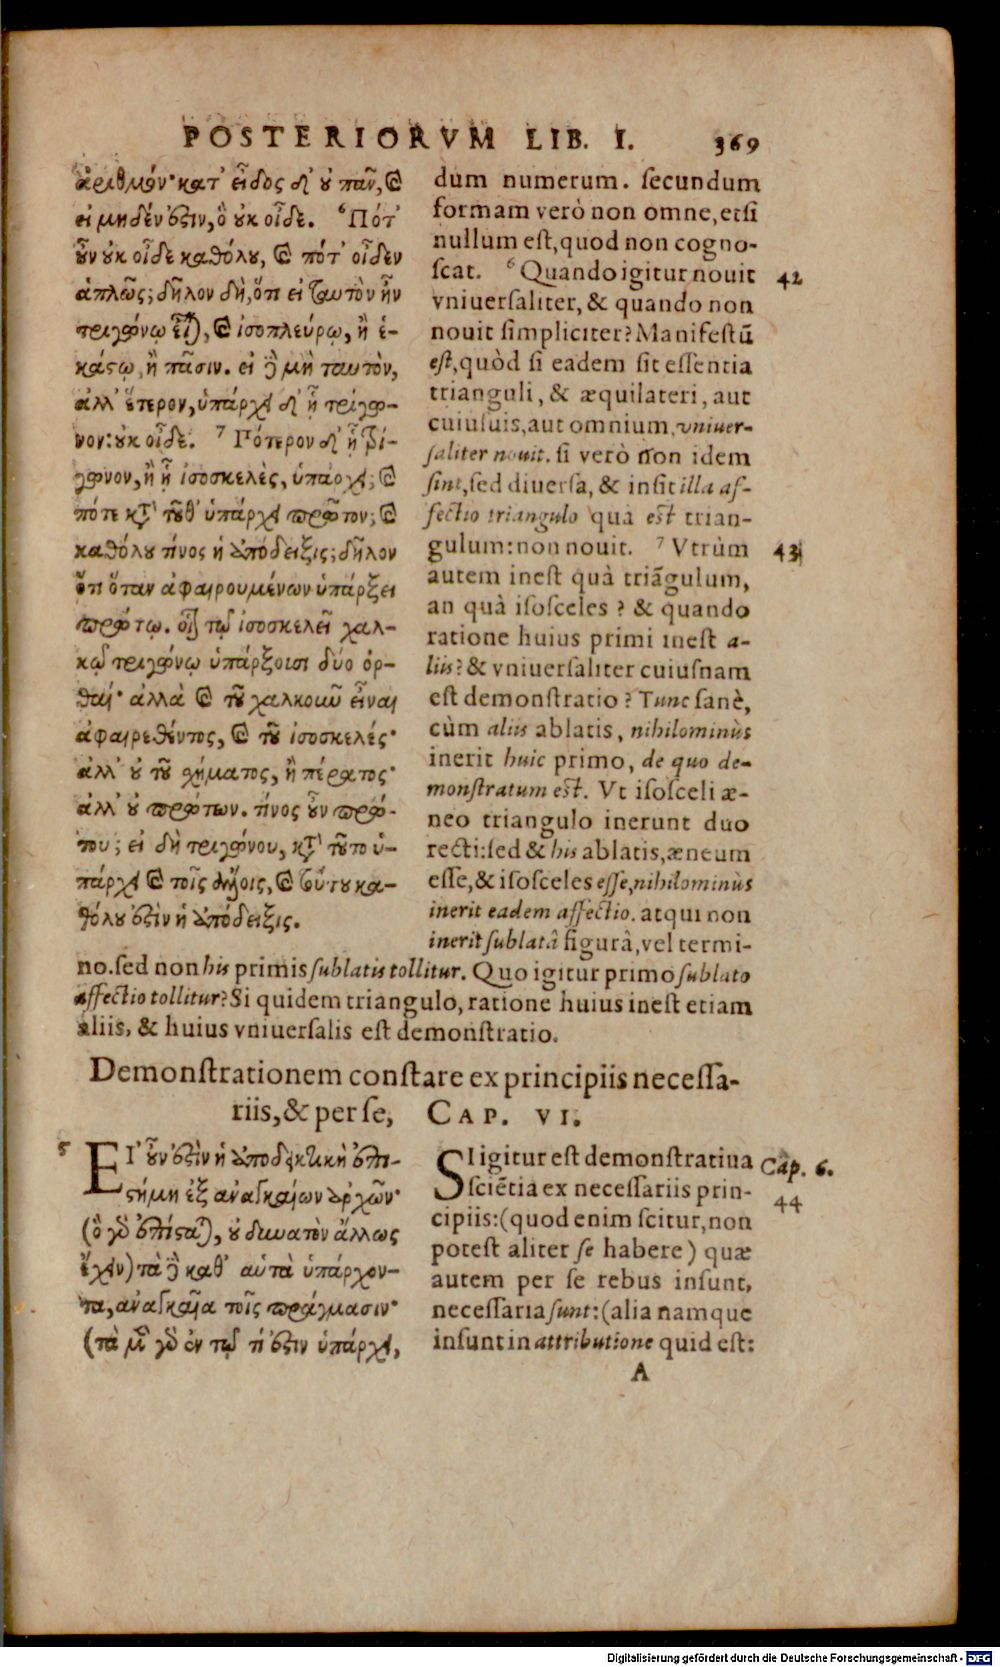 POSTERIORVM LIB. I. 369
ἀριθμόν· κατ' εἶδος δ' οὐ πᾶν, καὶ
εἰ μηδέν ἐστιν, ὃ οὐκ οἶδε. ⁶ Πότ'
οὖν οὐκ οἶδε καθόλου, καὶ πότ' οἶδεν
ἁπλῶς; δῆλον δὴ, ὅτι εἰ ταυτὸν ἦν
τριγώνῳ εἶναι, καὶ ἰσοπλεύρῳ, ἢ ἑ-
κάστῳ, ἢ πᾶσιν. εἰ δὲ μὴ ταυτὸν,
ἀλλ' ἕτερον, ὑπάρχει δ' ᾗ τρίγω-
νον: οὐκ οἶδε. ⁷ Πότερον δ' ᾗ τρί-
γωνον, ἢ ᾗ ἰσοσκελὲς, ὑπάρχει; καὶ
πότε κατὰ τοῦθ' ὑπάρχει πρῶτον; καὶ
καθόλου τίνος ἡ ἀπόδειξις; δῆλον
ὅτι ὅταν ἀφαιρουμένων ὑπάρξει
πρώτῳ. οἷον τῷ ἰσοσκελεῖ χαλ-
κῷ τριγώνῳ ὑπάρξουσι δύο ὀρ-
θαί· ἀλλὰ καὶ τοῦ χαλκοῦν εἶναι
ἀφαιρεθέντος, καὶ τοῦ ἰσοσκελές·
ἀλλ' οὐ τοῦ σχήματος, ἢ πέρατος·
ἀλλ' οὐ πρώτων. τίνος οὖν πρώ-
του; εἰ δὴ τριγώνου, κατὰ τοῦτο ὑ-
πάρχει καὶ τοῖς ἄλλοις, καὶ τούτου κα-
θόλου ἐστὶν ἡ ἀπόδειξις.
dum numerum. secundum
formam verò non omne, etsi
nullum est, quod non cogno-
scat. ⁶ Quando igitur nouit
vniuersaliter, & quando non
nouit simpliciter? Manifestū
est, quòd si eadem sit essentia
trianguli, & æquilateri, aut
cuiusuis, aut omnium, vniuer-
saliter nouit. si verò non idem
sint, sed diuersa, & insit illa af-
fectio triangulo qua est trian-
gulum: non nouit. ⁷ Vtrùm
autem inest quà triāgulum,
an quà isosceles? & quando
ratione huius primi inest a-
liis? & vniuersaliter cuiusnam
est demonstratio? Tunc sanè,
cùm aliis ablatis, nihilominùs
inerit huic primo, de quo de-
monstratum est. Vt isosceli æ-
neo triangulo inerunt duo
recti: sed & his ablatis, æneum
esse, & isosceles esse, nihilominùs
inerit eadem affectio. atqui non
inerit sublatâ figurâ, vel termi-
42
43
no. sed non his primis sublatis tollitur. Quo igitur primo sublato
affectio tollitur? Si quidem triangulo, ratione huius inest etiam
aliis, & huius vniuersalis est demonstratio.
Demonstrationem constare ex principiis necessa-
riis, & per se, CAP. VI.
5
ΕΙ' οὖν ἐστὶν ἡ ἀποδεικτικὴ ἐπι-
στήμη ἐξ ἀναγκαίων ἀρχῶν·
(ὃ γὰρ ἐπίσταται, οὐ δυνατὸν ἄλλως
ἔχειν) τὰ δὲ καθ' αὑτὰ ὑπάρχον-
τα, ἀναγκαῖα τοῖς πράγμασιν·
(τὰ μὲν γὰρ ἐν τῷ τί ἐστιν ὑπάρχει,
SI igitur est demonstratiua
sciētia ex necessariis prin-
cipiis: (quod enim scitur, non
potest aliter se habere) quæ
autem per se rebus insunt,
necessaria sunt: (alia namque
insunt in attributione quid est:
Cap. 6.
44
A
Digitalisierung gefördert durch die Deutsche Forschungsgemeinschaft - DFG